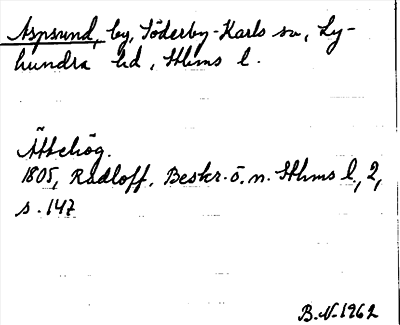 Aspsund, by, Söderby-Karls sn, Ly-
hundra hd, Sthms l.
Ättehög.
1805, Radloff, Beskr. ö. n. Sthms l, 2,
s. 147
B.N. 1962